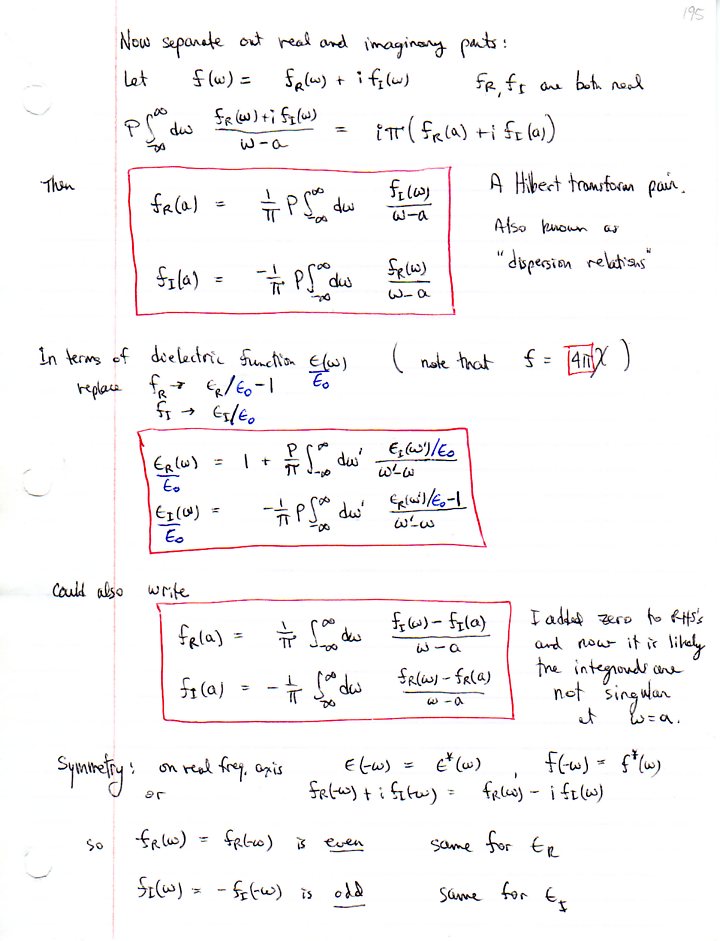 195
Now separate out real and imaginary parts:
Let f(ω) = f_R(ω) + i f_I(ω) f_R, f_I are both real
P∫_{-∞}^{∞} dω (f_R(ω) + i f_I(ω))/(ω-a) = iπ(f_R(a) + i f_I(a))
Then
f_R(a) = 1/π P∫_{-∞}^{∞} dω f_I(ω)/(ω-a)
f_I(a) = -1/π P∫_{-∞}^{∞} dω f_R(ω)/(ω-a)
A Hilbert transform pair.
Also known as
"dispersion relations"
In terms of dielectric function ε(ω)/ε₀ ( note that f = 4π χ )
replace f_R → ε_R/ε₀-1
f_I → ε_I/ε₀
ε_R(ω)/ε₀ = 1 + P/π ∫_{-∞}^{∞} dω' (ε_I(ω')/ε₀)/(ω'-ω)
ε_I(ω)/ε₀ = -1/π P∫_{-∞}^{∞} dω' (ε_R(ω')/ε₀-1)/(ω'-ω)
Could also write
f_R(a) = 1/π ∫_{-∞}^{∞} dω (f_I(ω) - f_I(a))/(ω-a)
f_I(a) = -1/π ∫_{-∞}^{∞} dω (f_R(ω) - f_R(a))/(ω-a)
I added zero to RHS's
and now it is likely
the integrands are
not singular
at ω=a.
Symmetry: on real freq. axis ε(-ω) = ε*(ω) , f(-ω) = f*(ω)
or f_R(-ω) + i f_I(-ω) = f_R(ω) - i f_I(ω)
so f_R(ω) = f_R(-ω) is even same for ε_R
f_I(ω) = - f_I(-ω) is odd same for ε_I